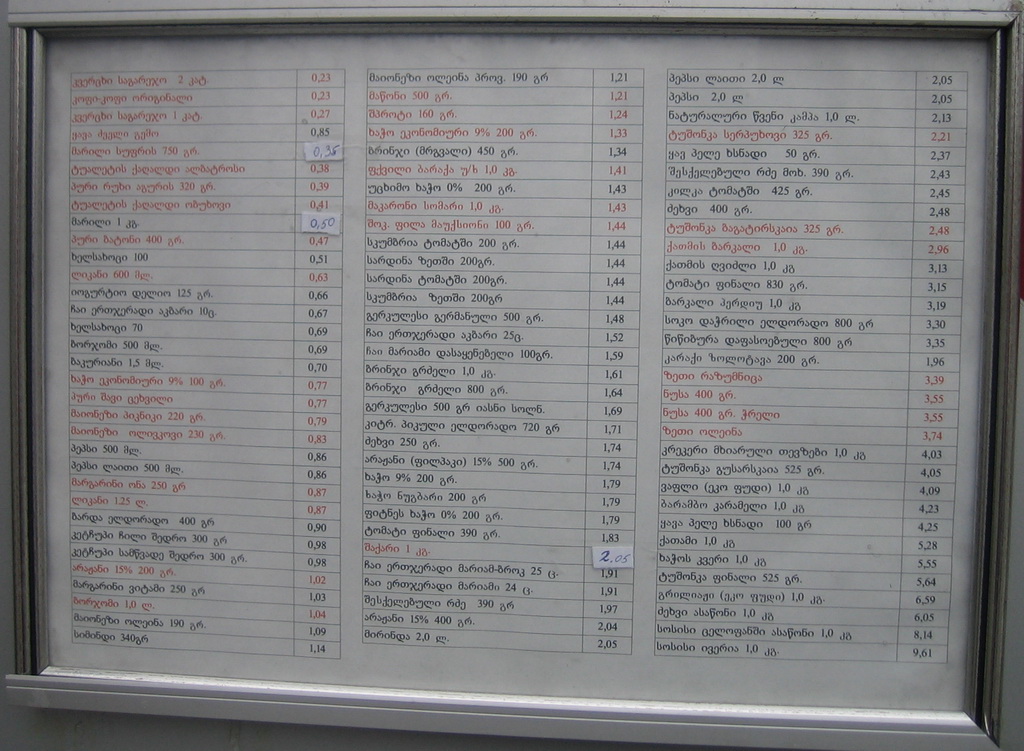 კვერცხი საგარეჯო 2 კატ. 0,23
კოფი-კოფი ორიგინალი 0,23
კვერცხი საგარეჯო 1 კატ. 0,27
ყავა ძველი გემო 0,85
მარილი სუფრის 750 გრ. 0,35
ტუალეტის ქაღალდი ალბატროსი 0,38
პური რუხი აგურის 320 გრ. 0,39
ტუალეტის ქაღალდი ობუხოვი 0,41
მარილი 1 კგ. 0,50
პური ბატონი 400 გრ. 0,47
ხელსახოცი 100 0,51
ლიკანი 600 მლ. 0,63
იოგურტიო დელიო 125 გრ. 0,66
ჩაი ერთჯერადი აკბარი 10ც. 0,67
ხელსახოცი 70 0,69
ბორჯომი 500 მლ. 0,69
ბაკურიანი 1,5 მლ. 0,70
ხაჭო ეკონომიური 9% 100 გრ. 0,77
პური შავი ცეხვილი 0,77
მაიონეზი პიკნიკი 220 გრ. 0,79
მაიონეზი ოლივკოვი 230 გრ. 0,83
პეპსი 500 მლ. 0,86
პეპსი ლაითი 500 მლ. 0,86
მარგარინი ონა 250 გრ 0,87
ლიკანი 1.25 ლ. 0,87
ბარდა ელდორადო 400 გრ 0,90
კეტჩუპი ჩილი შედრო 300 გრ 0,98
კეტჩუპი სამწვადე შედრო 300 გრ. 0,98
არაჟანი 15% 200 გრ. 1,02
მარგარინი ვიტამი 250 გრ 1,03
ბორჯომი 1,0 ლ. 1,04
მაიონეზი ოლეინა 190 გრ. 1,09
სიმინდი 340გრ 1,14
მაიონეზი ოლეინა პროვ. 190 გრ 1,21
მაწონი 500 გრ. 1,21
შპროტი 160 გრ. 1,24
ხაჭო ეკონომიური 9% 200 გრ. 1,33
ბრინჯი (მრგვალი) 450 გრ. 1,34
ფქვილი ბარაქა უ/ხ 1,0 კგ. 1,41
უცხიმო ხაჭო 0% 200 გრ. 1,43
მაკარონი სომარი 1,0 კგ. 1,43
შოკ. ფილა მაუქსიონი 100 გრ. 1,44
სკუმბრია ტომატში 200 გრ. 1,44
სარდინა ზეთში 200გრ. 1,44
სარდინა ტომატში 200გრ. 1,44
სკუმბრია ზეთში 200გრ 1,44
გერკულესი გერმანული 500 გრ. 1,48
ჩაი ერთჯერადი აკბარი 25ც. 1,52
ჩაი მარიამი დასაყენებელი 100გრ. 1,59
ბრინჯი გრძელი 1,0 კგ. 1,61
ბრინჯი გრძელი 800 გრ. 1,64
გერკულესი 500 გრ იასნი სოლნ. 1,69
კიტრ. პიკული ელდორადო 720 გრ 1,71
ძეხვი 250 გრ. 1,74
არაჟანი (ფილპაკი) 15% 500 გრ. 1,74
ხაჭო 9% 200 გრ. 1,79
ხაჭო ნუგბარი 200 გრ 1,79
ფიტნეს ხაჭო 0% 200 გრ. 1,79
ტომატი ფინალი 390 გრ. 1,83
შაქარი 1 კგ. 2.05
ჩაი ერთჯერადი მარიამ-ბროკ 25 ც. 1,91
ჩაი ერთჯერადი მარიამი 24 ც. 1,91
შესქელებული რძე 390 გრ 1,97
არაჟანი 15% 400 გრ. 2,04
მირინდა 2,0 ლ. 2,05
პეპსი ლაითი 2,0 ლ 2,05
პეპსი 2,0 ლ 2,05
ნატურალური წვენი კამპა 1,0 ლ. 2,13
ტუშონკა სერპუხოვი 325 გრ. 2,21
ყავ პელე ხსნადი 50 გრ. 2,37
შესქელებული რძე მოხ. 390 გრ. 2,43
კილკა ტომატში 425 გრ. 2,45
ძეხვი 400 გრ. 2,48
ტუშონკა ბაგატირსკაია 325 გრ. 2,48
ქათმის ბარკალი 1,0 კგ. 2,96
ქათმის ღვიძლი 1,0 კგ 3,13
ტომატი ფინალი 830 გრ. 3,15
ბარკალი პერდიუ 1,0 კგ 3,19
სოკო დაჭრილი ელდორადო 800 გრ 3,30
წიწიბურა დაფასოებული 800 გრ 3,35
კარაქი ზოლოტავა 200 გრ. 1,96
ზეთი რაზუმნიცა 3,39
ნუსა 400 გრ. 3,55
ნუსა 400 გრ. ჭრელი 3,55
ზეთი ოლეინა 3,74
კრეკერი მხიარული თევზები 1,0 კგ 4,03
ტუშონკა გუსარსკაია 525 გრ. 4,05
ვაფლი (ეკო ფუდი) 1,0 კგ 4,09
ბარამბო კარამელი 1,0 კგ 4,23
ყავა პელე ხსნადი 100 გრ 4,25
ქათამი 1,0 კგ 5,28
ხაჭოს კვერი 1,0 კგ 5,55
ტუშონკა ფინალი 525 გრ. 5,64
გრილიაჟი (ეკო ფუდი) 1,0 კგ. 6,59
ძეხვი ასაწონი 1,0 კგ 6,05
სოსისი ცელოფანში ასაწონი 1,0 კგ 8,14
სოსისი ივერია 1,0 კგ. 9,61